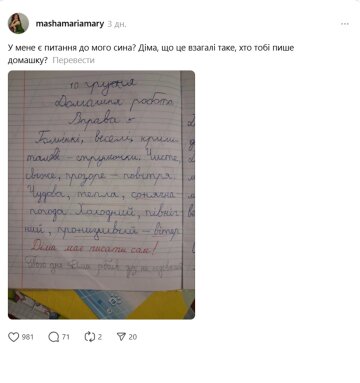 mashamariamary 3 дн.
У мене є питання до мого сина? Діма, що це взагалі таке, хто тобі пише
домашку? Перевести
10 грудня
Домашня робота
Вправа
веселі,
струмочки. Чисте,
свіже, прозоре – повітря.
Чудова, тепла, сонячна
погода. Холодний, північ
ний, пронизливий – вітер.
Діма має писати сам!
981 71 2 20